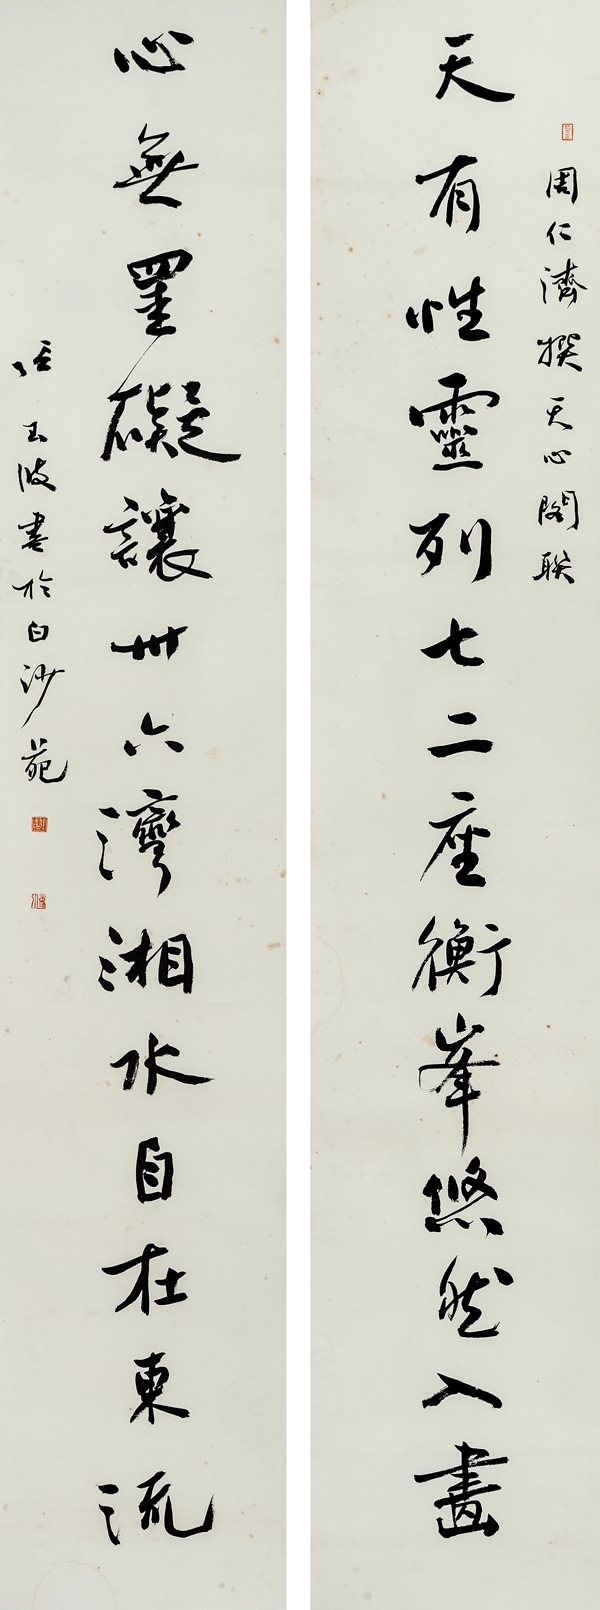 周仁濟撰天心閣联
天有性靈列七二座衡峯悠然入畫
心無罣礙讓卅六灣湘水自在東流
玉波書於白沙苑